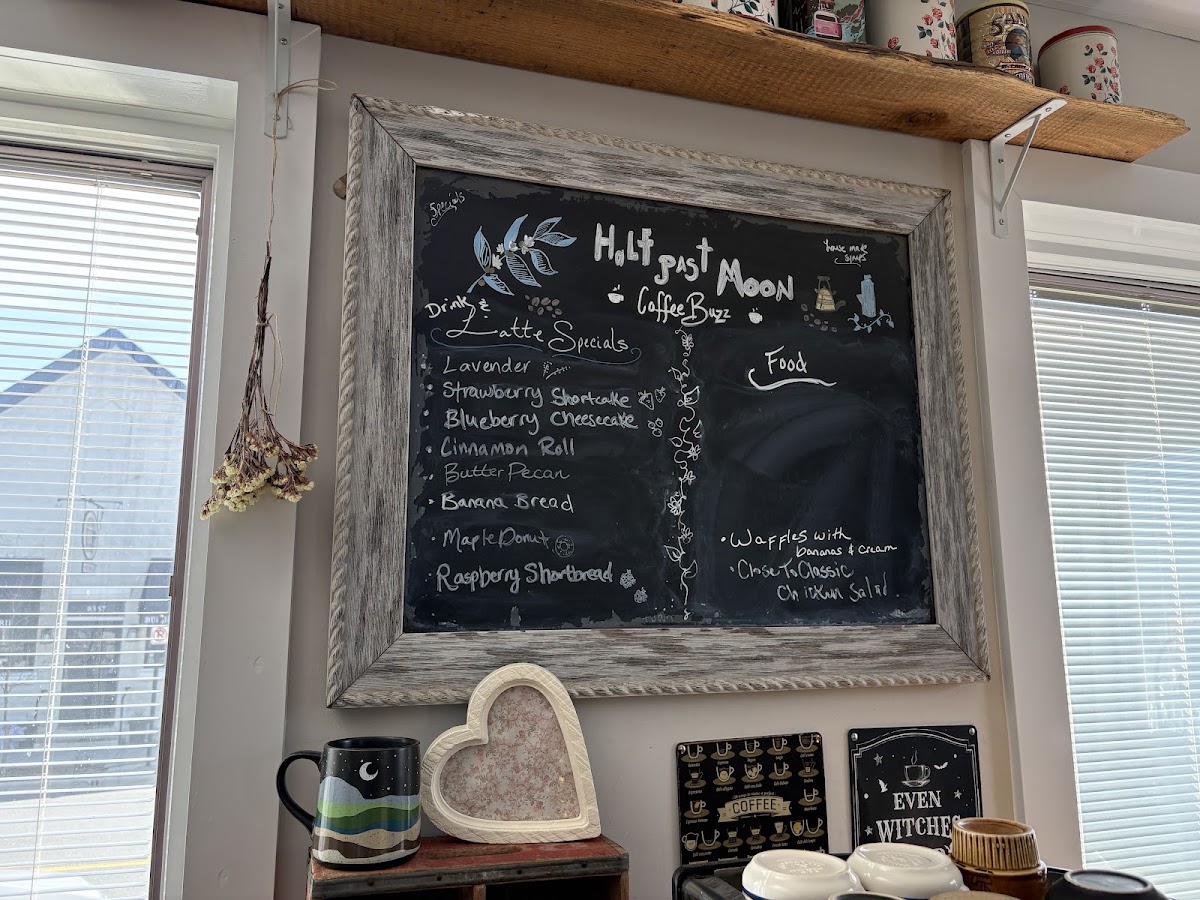 Specials
Half past Moon
Coffee Buzz
house made
syrups
Drink &
Latte Specials
• Lavender
• Strawberry Shortcake
• Blueberry Cheesecake
• Cinnamon Roll
• Butter Pecan
• Banana Bread
• Maple Donut
• Raspberry Shortbread
Food
• Waffles with
bananas & cream
• Close To Classic
Chicken Salad
SAN
COFFEE
EVEN
WITCHES